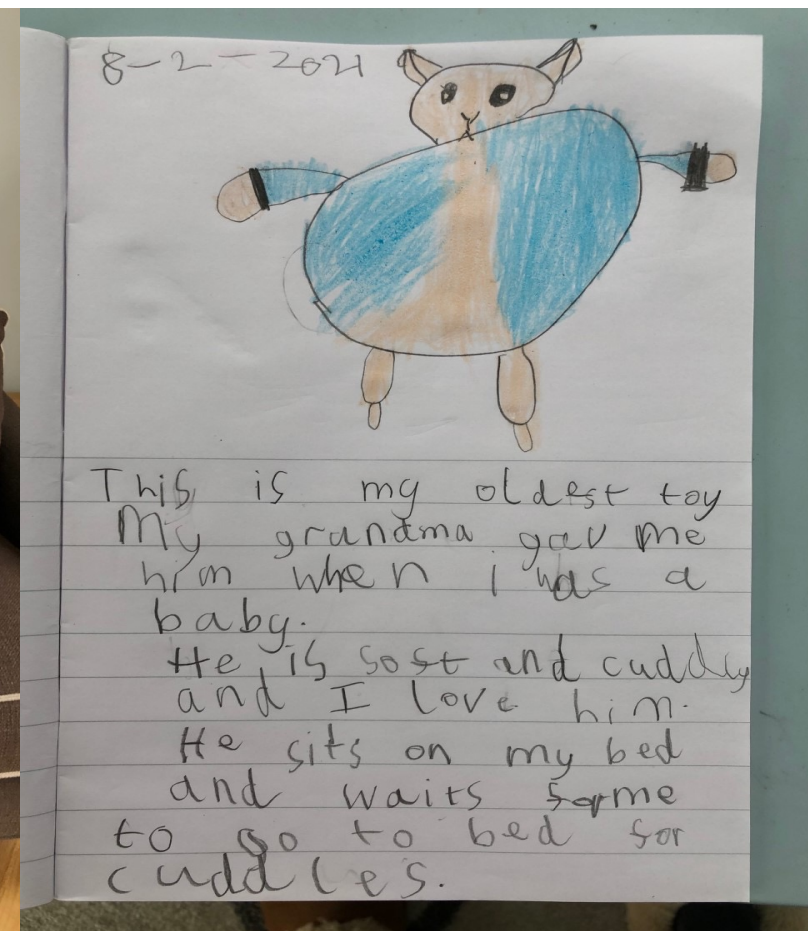 8-2-2021
This is my oldest toy
My grandma gav me
him when i was a
baby.
He is soft and cuddly
and I love him.
He sits on my bed
and waits for me
to go to bed for
cuddles.